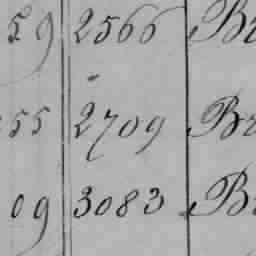 59 2566 Br
55 2709 Br
09 3083 Br